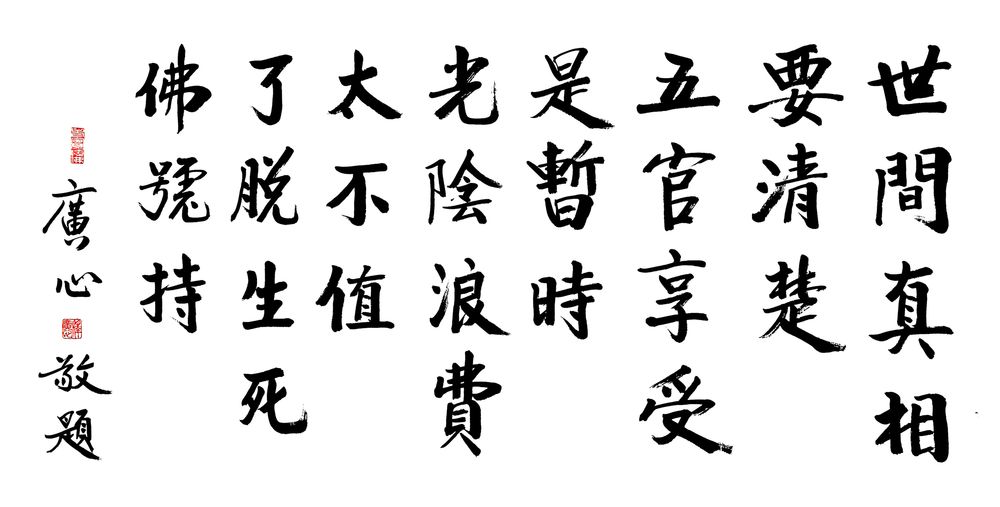 世間真相
要清楚
五官享受
是暫時
光陰浪費
太不值
了脫生死
佛號持
廣心敬題